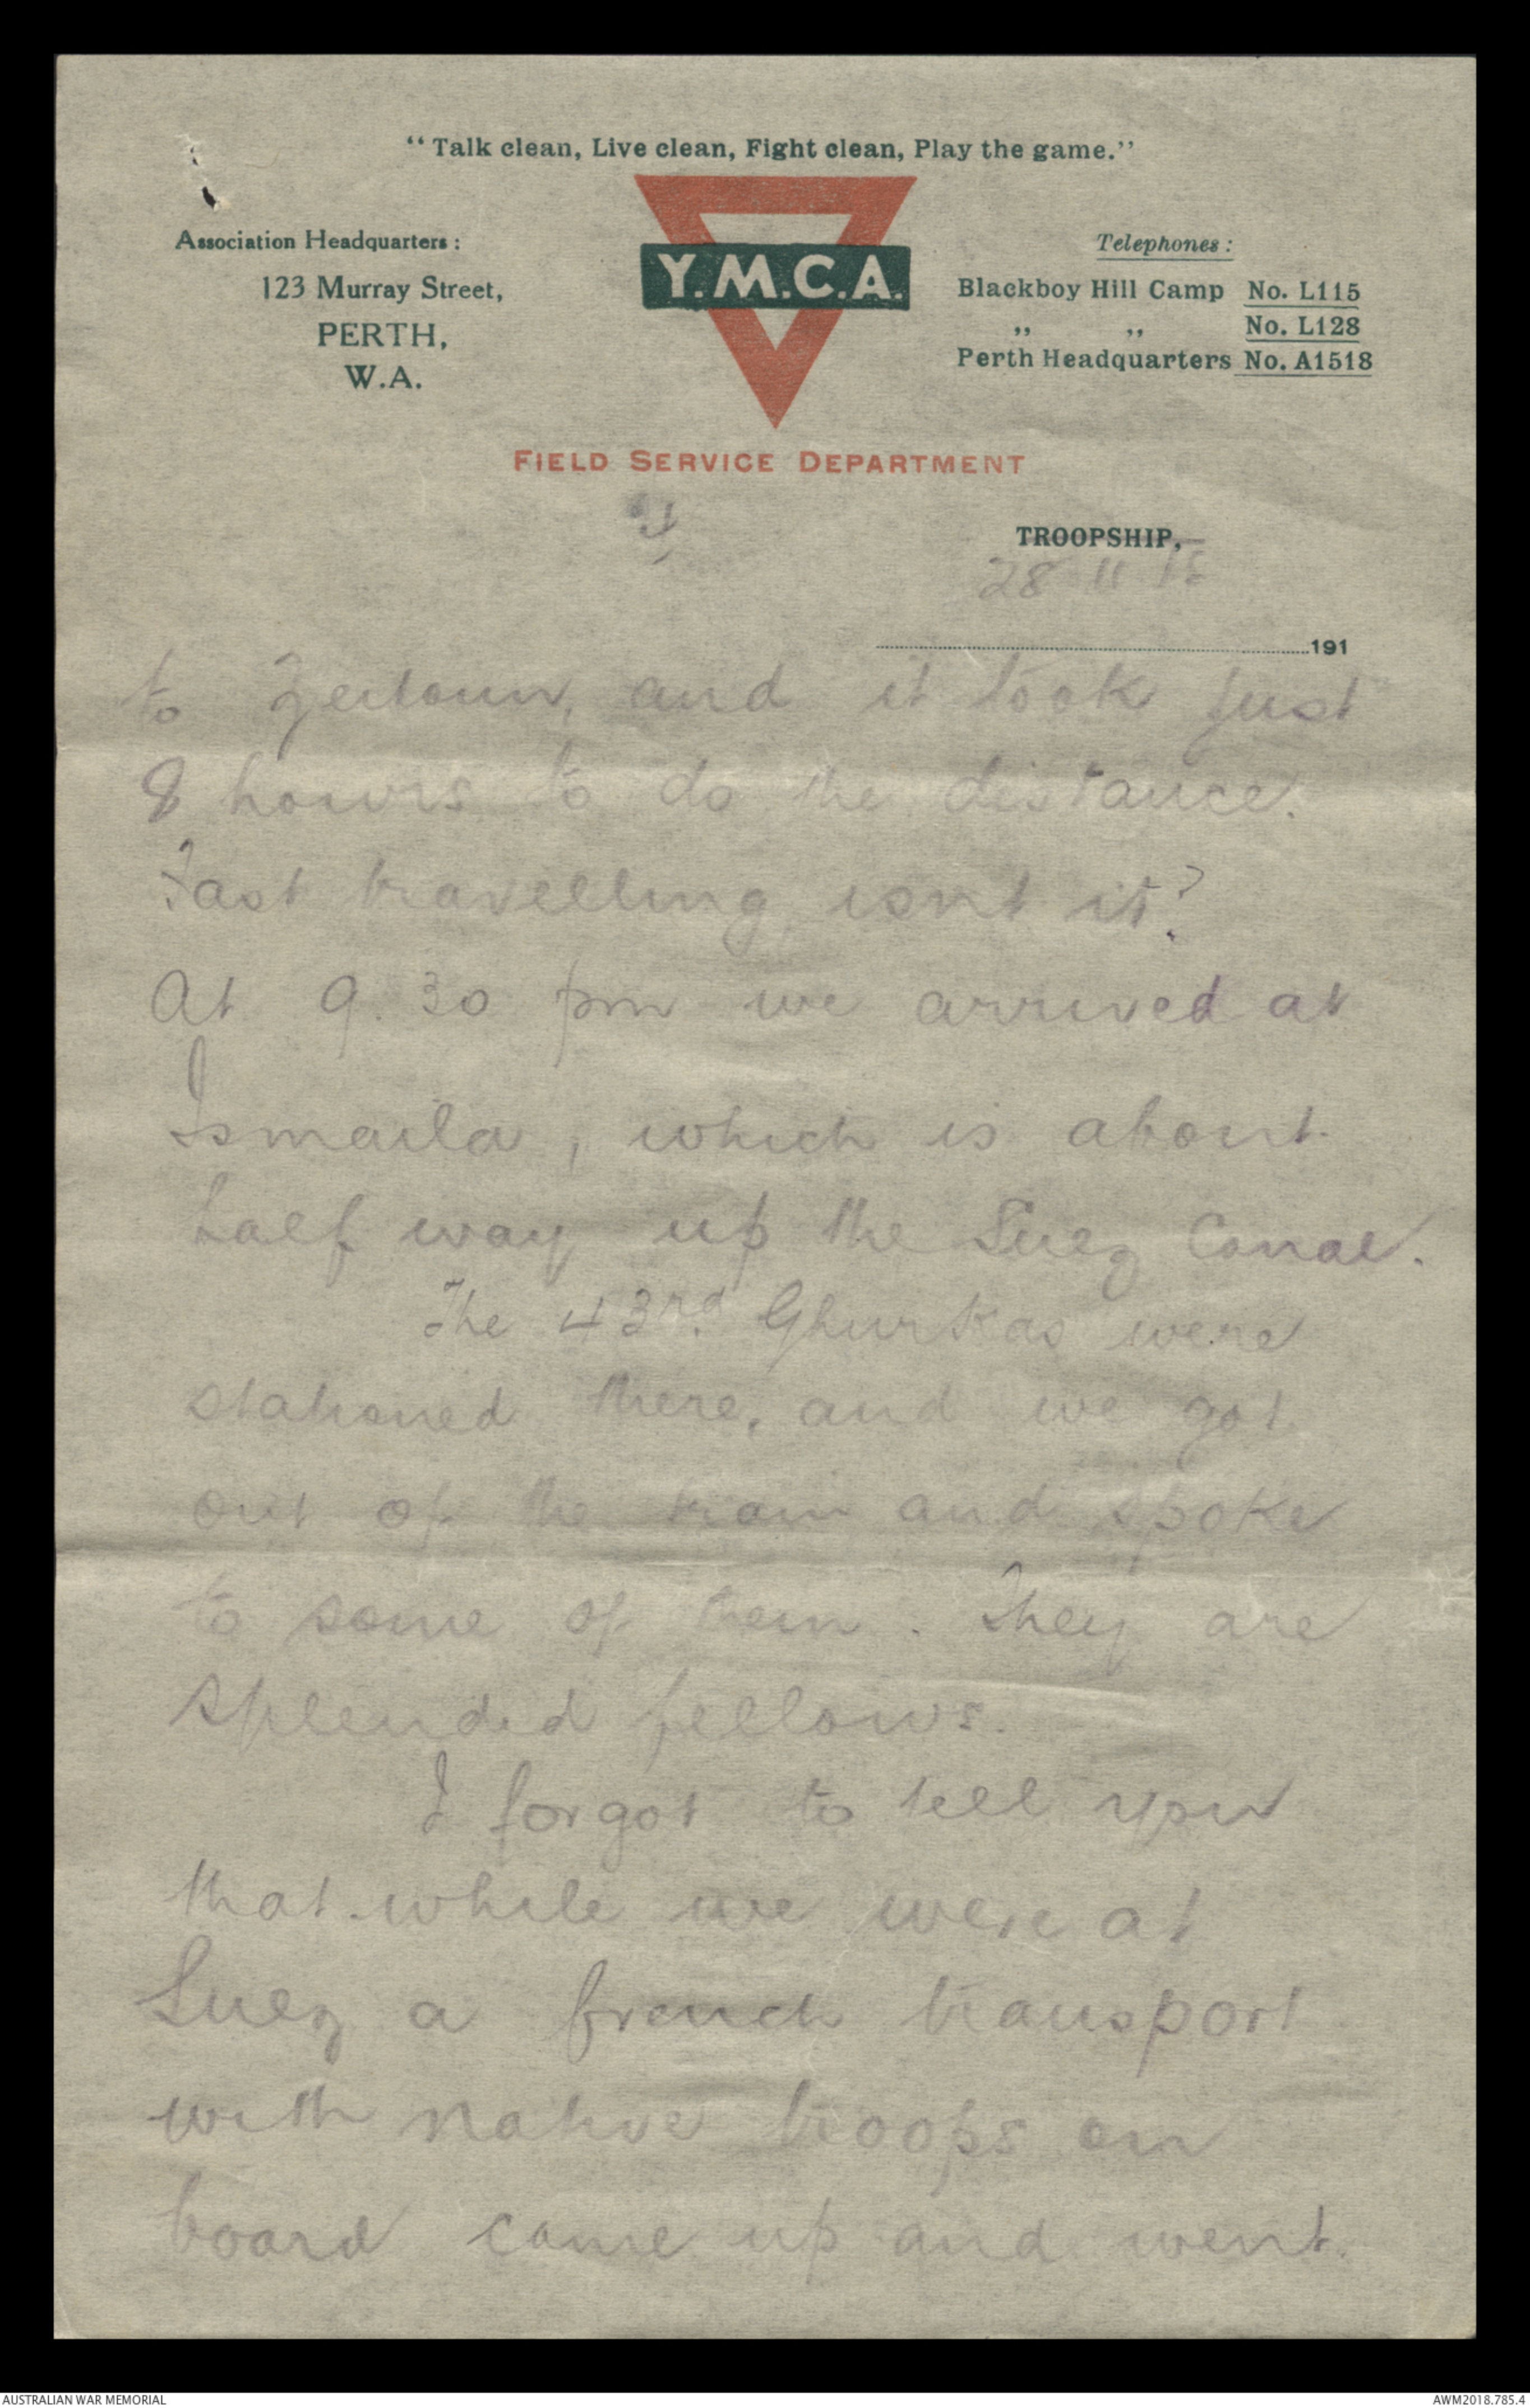 “Talk clean, Live clean, Fight clean, Play the game.”
Association Headquarters :
123 Murray Street,
PERTH,
W.A.
Y.M.C.A.
Telephones :
Blackboy Hill Camp No. L115
„ „ No. L128
Perth Headquarters No. A1518
FIELD SERVICE DEPARTMENT
TROOPSHIP,
28 11 15
191
to Zeitoun, and it took just
8 hours to do the distance.
Fast travelling isnt it?
At 9.30 pm we arrived at
Ismaila, which is about
half way up the Suez Canal.
The 43rd. Ghurkas were
stationed there, and we got
out of the train and spoke
to some of them. They are
splended fellows.
I forgot to tell you
that while we were at
Suez a french transport
with native troops on
board came up and went.
AUSTRALIAN WAR MEMORIAL
AWM2018.785.4